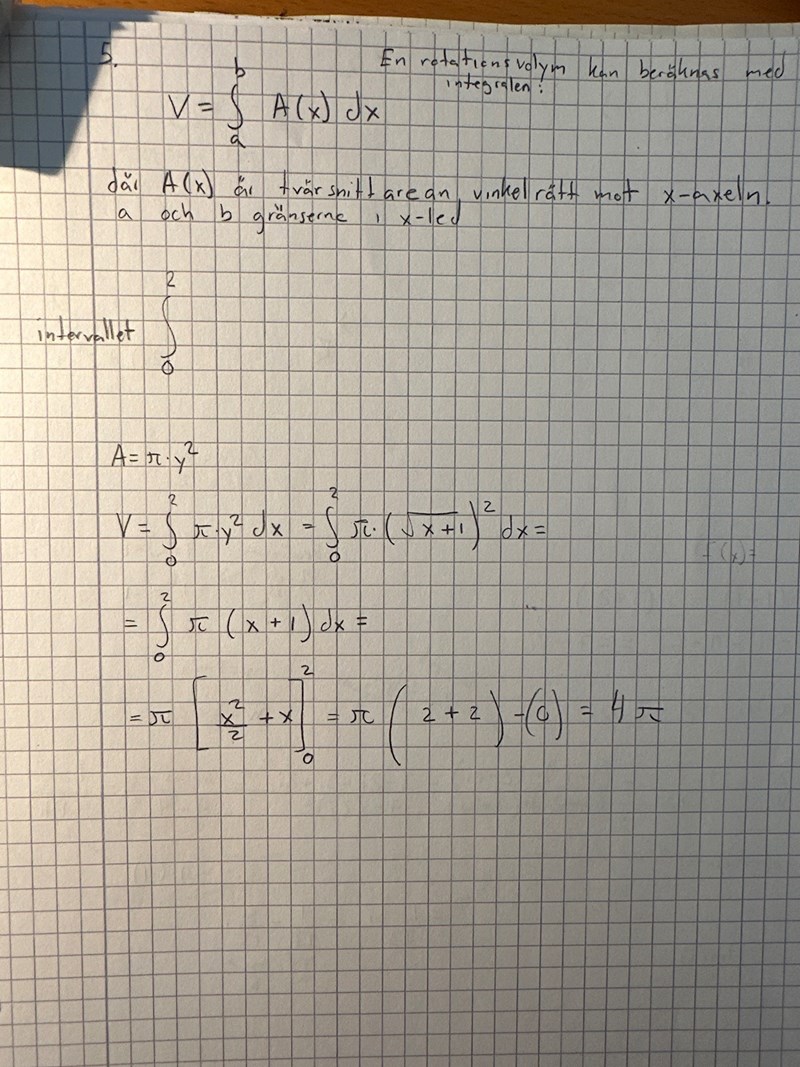 5.
En rotationsvolym kan beräknas med
integralen:
V = ∫_a^b A(x) dx
där A(x) är tvärsnittarean, vinkelrätt mot x-axeln.
a och b gränserna i x-led
intervallet ∫_0^2
A = π · y²
V = ∫_0^2 π · y² dx = ∫_0^2 π · (√(x+1))² dx =
f(x) =
= ∫_0^2 π (x + 1) dx =
= π [x²/2 + x]_0^2 = π (2 + 2) - (0) = 4π